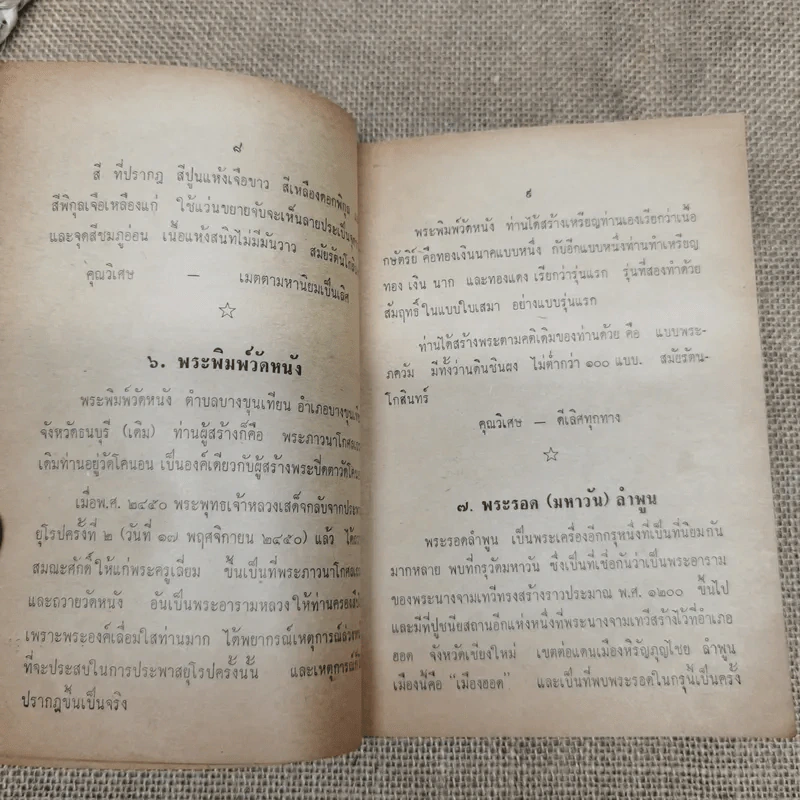 ๘
สี ที่ปรากฎ สีปูนแห้งเจือขาว สีเหลืองดอกพิกุล
สีพิกุลเจือเหลืองแก่ ใช้แว่นขยายจับจะเห็นลายประเป็นจุด
และจุดสีชมภูอ่อน เนื้อแห้งสนิทไม่มีมันวาว สมัยรัตนโกสิน
คุณวิเศษ — เมตตามหานิยมเป็นเลิศ
☆
๖. พระพิมพ์วัดหนัง
พระพิมพ์วัดหนัง ตำบลบางขุนเทียน อำเภอบางขุนเ
จังหวัดธนบุรี (เดิม) ท่านผู้สร้างก็คือ พระภาวนาโกศล
เดิมท่านอยู่วัดโคนอน เป็นองค์เดียวกับผู้สร้างพระปิดตาวัดโค
เมื่อพ.ศ. ๒๔๕๐ พระพุทธเจ้าหลวงเสด็จกลับจากประ
ยุโรปครั้งที่ ๒ (วันที่ ๑๗ พฤศจิกายน ๒๔๕๐) แล้ว ได้
สมณะศักดิ์ ให้แก่พระครูเลี่ยม ขึ้นเป็นที่พระภาวนาโกศล
และถวายวัดหนัง อันเป็นพระอารามหลวง ให้ท่านครอง
เพราะพระองค์เลื่อมใสท่านมาก ได้พยากรณ์เหตุการณ์ล่วง
ที่จะประสบในการประพาสยุโรปครั้งนั้น และเหตุการณ์ก็
ปรากฎขึ้นเป็นจริง
๙
พระพิมพ์วัดหนัง ท่านได้สร้างเหรียญท่านเองเรียกว่าเนื้อ
กษัตริย์ คือทองเงินนาคแบบหนึ่ง กับอีกแบบหนึ่งท่านทำเหรียญ
ทอง เงิน นาก และทองแดง เรียกว่ารุ่นแรก รุ่นที่สองทำด้วย
สัมฤทธิ์ ในแบบใบเสมา อย่างแบบรุ่นแรก
ท่านได้สร้างพระตามคติเดิมของท่านด้วย คือ แบบพระ-
ภควัม มีทั้งว่านดินชินผง ไม่ต่ำกว่า ๑๐๐ แบบ. สมัยรัตน-
โกสินทร์
คุณวิเศษ — ดีเลิศทุกทาง
☆
๗. พระรอด (มหาวัน) ลำพูน
พระรอดลำพูน เป็นพระเครื่องอีกกรุหนึ่งที่เป็นที่นิยมกัน
มากหลาย พบที่กรุวัดมหาวัน ซึ่งเป็นที่เชื่อกันว่าเป็นพระอาราม
ของพระนางจามเทวีทรงสร้างราวประมาณ พ.ศ. ๑๒๐๐ ขึ้นไป
และมีที่ปูชนียสถานอีกแห่งหนึ่งที่พระนางจามเทวีสร้างไว้ที่อำเภอ
ฮอด จังหวัดเชียงใหม่ เขตต่อแดนเมืองหิรัญภุญไชย ลำพูน
เมืองนี้คือ "เมืองฮอด" และเป็นที่พบพระรอดในกรุนี้เป็นครั้ง